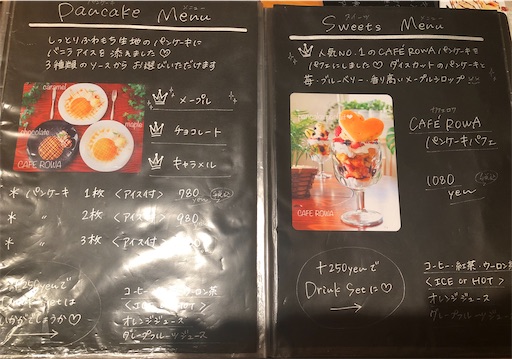 Pancake Menu
メニュー
しっとりふわもち生地のパンケーキに
バニラアイスを添えました♡
3種類のソースからお選びいただけます
caramel
maple
chocolate
CAFE ROWA
メープル
チョコレート
キャラメル
* パンケーキ 1枚 <アイス付> 780 yen
* 〃 2枚 <アイス付> 980
* 〃 3枚 <アイス付>
+250yenで
Drink Setは
いかがでしょうか♡
コーヒー・紅茶・ウーロン茶
<ICE or HOT>
オレンジジュース
グレープフルーツジュース
Sweets Menu
スイーツ メニュー
人気NO.1のCAFÉ ROWAパンケーキを
パフェにしました♡ ダイスカットのパンケーキと
苺・ブルーベリー・香り高いメープルシロップ
CAFE ROWA
カフェロワ
CAFÉ ROWA
パンケーキパフェ
1080
yen
+250yenで
Drink Setに♡
コーヒー・紅茶・ウーロン茶
<ICE or HOT>
オレンジジュース
グレープフルーツジュース